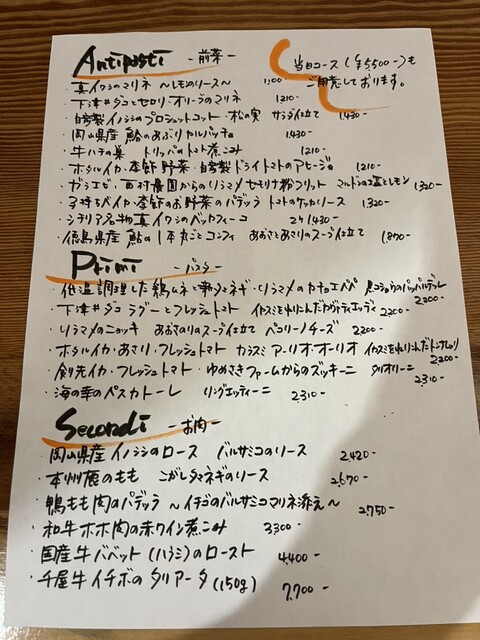 Antipasti -前菜-
当日コース(¥5,500-)も
ご用意しております。
・真イワシのマリネ 〜レモンのソース〜 1,100-
・下津井ダコとセロリ・オリーブのマリネ 1210-
・自家製イノシシのプロシュットコット・松の実 サラダ仕立て 1,430-
・岡山県産 鮎のあぶりカルパッチョ 1,430-
・牛ハチの巣 トリッパのトマト煮こみ 1210-
・ホタルイカ・春野菜・自家製ドライトマトのアヒージョ 1,210-
・ガシエビ・西村農園からのソラマメ セモリナ粉フリット マルドンの塩とレモン 1,320-
・子持ちヤリイカ・春のお野菜のパデッラ トマトのケッカソース 1,320-
・シチリア名物 真イワシのベッカフィーコ 2ケ 1,430-
・徳島県産 鮎の1本丸ごとコンフィ あおさとあさりのスープ仕立て 1,870-
Primi -パスタ-
低温調理した鶏ムネと新タマネギ・ソラマメのカチョエペペ 黒コショウのパッパルデッレ 2,200-
・下津井ダコ ラグーとフレッシュトマト イカスミをねりこんだスパゲッティエッディ 2,200-
・ソラマメのニョッキ あおさのりのスープ仕立て ペコリーノチーズ 2200-
・ホタルイカ・あさり・フレッシュトマト カラスミ アーリオオーリオ イカスミをねりこんだトンナレッリ 2,200-
・剣先イカ・フレッシュトマト・ゆめさきファームからのズッキーニ タリオリーニ 2,310-
・海の幸のペスカトーレ リングエッティーニ 2,310-
Secondi -お肉-
・岡山県産 イノシシのロース バルサミコのソース 2,420-
・本州鹿のもも こがしタマネギのソース 2,670-
・鴨もも肉のパデッラ 〜イチゴのバルサミコマリネ添え〜 2,750-
・和牛ホホ肉の赤ワイン煮こみ 3,300-
・国産牛バベット(ハラミ)のロースト 4,400-
・千屋牛イチボのタリアータ(150g) 7,700-